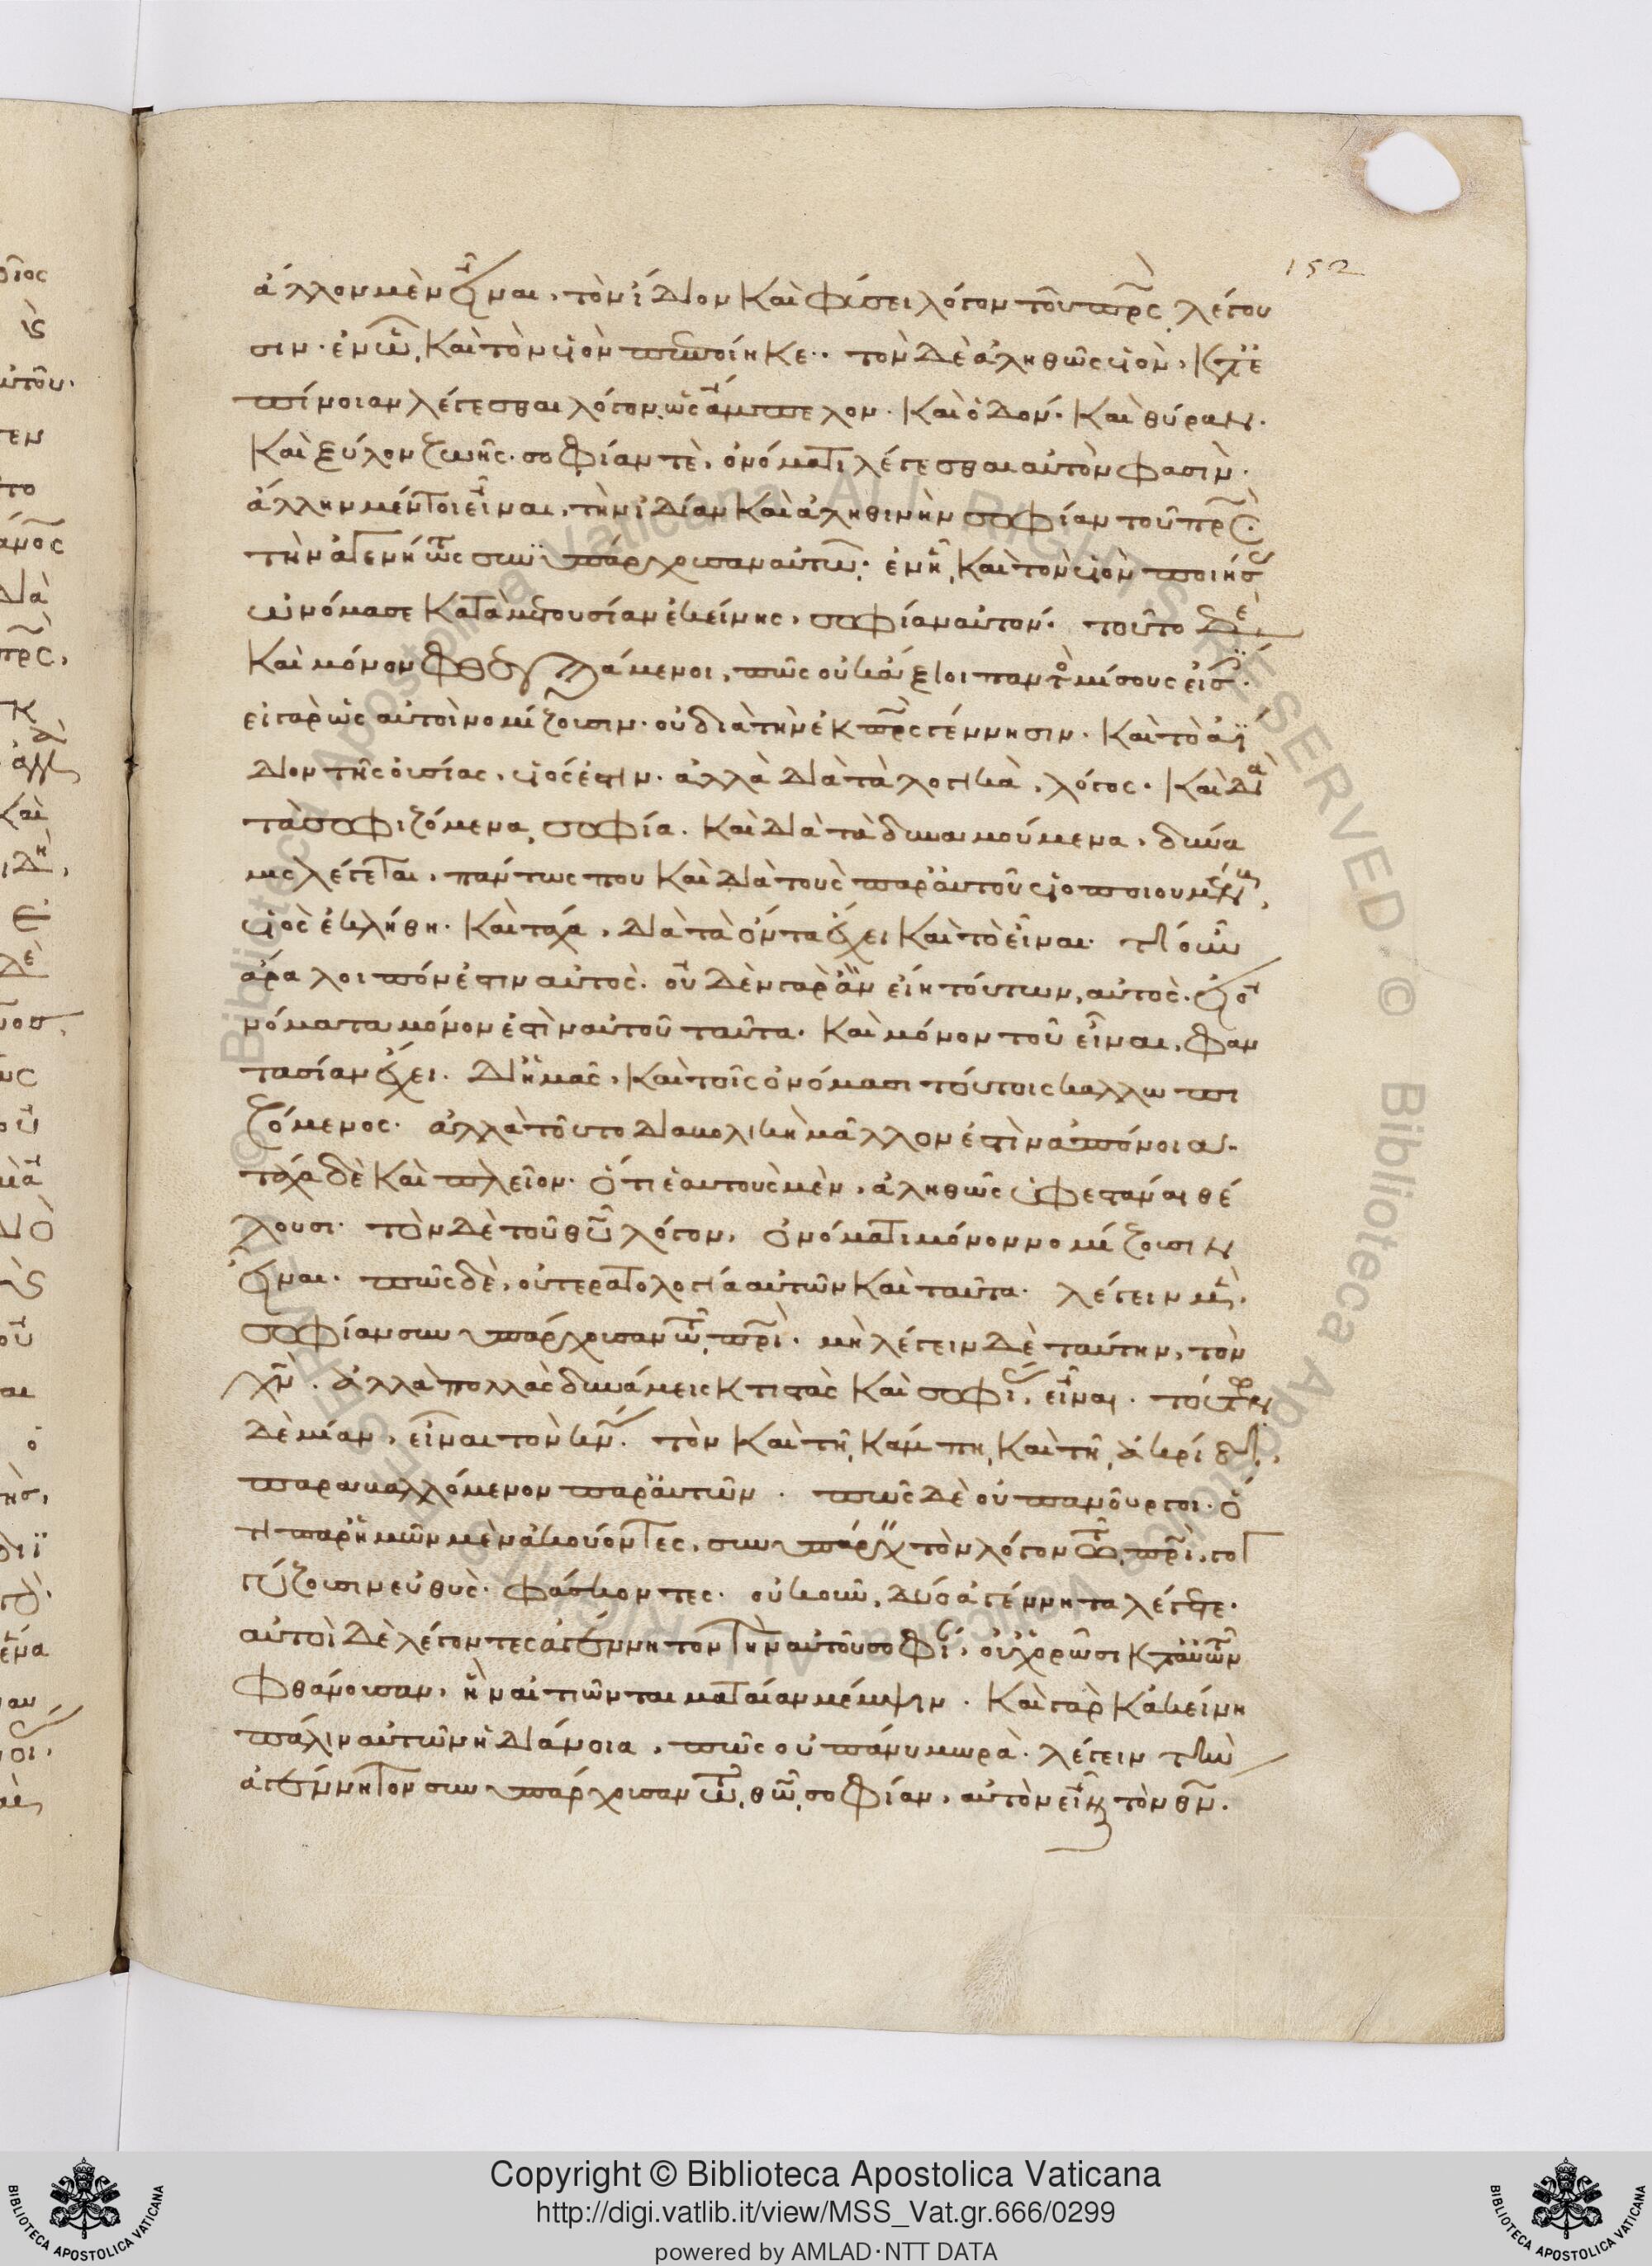 152
ἄλλον μὲν εἶναι, τὸν ἴδιον καὶ φύσει λόγον τοῦ πρς λέγου
σιν· ἐν ᾧ καὶ τὸν υἱὸν πεποίηκε· τὸν δὲ ἀληθῶς υἱὸν, κατ' ἐ
πίνοιαν λέγεσθαι λόγον, ὡς ἄμπελον· καὶ ὁδόν· καὶ θύραν·
καὶ ξύλον ζωῆς· σοφίαν τὲ, ὀνόματι λέγεσθαι αὐτόν φασιν·
ἄλλην μέντοι εἶναι, τὴν ἰδίαν καὶ ἀληθινὴν σοφίαν τοῦ πρς·
τὴν ἀγενήτως συνυπάρχουσαν αὐτῶ· ἐν ἧ καὶ τὸν υἱὸν ποιήσ
ὠνόμασε κατὰ μετουσίαν ἐκείνης, σοφίαν αὐτόν· τοῦτο δὲ
καὶ μόνον φθεγξάμενοι, πῶς οὐκ ἄξιοι παντὸς μίσους εἰσίν·
εἰ γὰρ ὡς αὐτοὶ νομίζουσιν· οὐ διὰ τὴν ἐκ πρς γέννησιν· καὶ τὸ ἀΐ
διον τῆς οὐσίας, υἱός ἐστιν· ἀλλὰ διὰ τὰ λογικὰ, λόγος· καὶ διὰ
τὰ σοφιζόμενα, σοφία· καὶ διὰ τὰ δυναμούμενα, δύνα
μις λέγεται, πάντως που καὶ διὰ τοὺς παρ' αὐτοῦ υἱοποιουμένους,
υἱὸς ἐκλήθη· καὶ τάχα, διὰ τὰ ὄντα ἔχει καὶ τὸ εἶναι· τί οὖν
ἄρα λοιπόν ἐστιν αὐτὸς· οὐδὲν γὰρ ἂν εἴη τούτων, αὐτὸς· εἰ ὀ
νόματα μόνον ἐστὶν αὐτοῦ ταῦτα· καὶ μόνον τοῦ εἶναι, φαν
τασίαν ἔχει· δι' ἡμᾶς, καὶ τοῖς ὀνόμασι τούτοις καλλωπι
ζόμενος· ἀλλὰ τοῦτο διαβολικὴ μᾶλλον ἐστὶν ἀπόνοια·
τάχα δὲ καὶ πλεῖον· ὅτι ἑαυτοὺς μὲν, ἀληθῶς ὑφεστάναι θέ
λουσι· τὸν δὲ τοῦ θῦ λόγον, ὀνόματι μόνον νομίζουσιν
εἶναι· πῶς δὲ, οὐ τερατολογία αὐτῶν καὶ ταῦτα· λέγειν μὲν·
σοφίαν συνυπάρχουσαν τῶ πρὶ· μὴ λέγειν δὲ ταύτην, τὸν
χν· ἀλλὰ πολλὰς δυνάμεις κτιστὰς καὶ σοφίας εἶναι· τούτων
δὲ μίαν, εἶναι τὸν κν· τὸν καὶ τῆ κάμπη καὶ τῆ ἀκρίδι,
παραβαλλόμενον παρ' αὐτῶν· πῶς δὲ οὐ πανοῦργοι· ὅ
τι παρ' ἡμῶν μὲν ἀκούοντες, συνυπάρχειν τὸν λόγον τῶ πρὶ, γογ
γύζουσιν εὐθὺς· φάσκοντες· οὐκοῦν, δύο ἀγέννητα λέγετε·
αὐτοὶ δὲ λέγοντες ἀγέννητον τὴν αὐτοῦ σοφίαν, οὐχ ὁρῶσι κατ' αὐτῶν
φθάνουσαν, ἣν αἰτιῶνται ματαίαν μέμψιν· καὶ γὰρ κἀκείνη
πάλιν αὐτῶν ἡ διάνοια, πῶς οὐ πάνυ μωρὰ· λέγειν τὴν
ἀγέννητον συνυπάρχουσαν τῶ θῶ σοφίαν, αὐτὸν εἶναι τὸν θν·
© Biblioteca Apostolica Vaticana ALL RIGHTS RESERVED
Copyright © Biblioteca Apostolica Vaticana
http://digi.vatlib.it/view/MSS_Vat.gr.666/0299
powered by AMLAD·NTT DATA
BIBLIOTECA APOSTOLICA VATICANA
BIBLIOTECA APOSTOLICA VATICANA